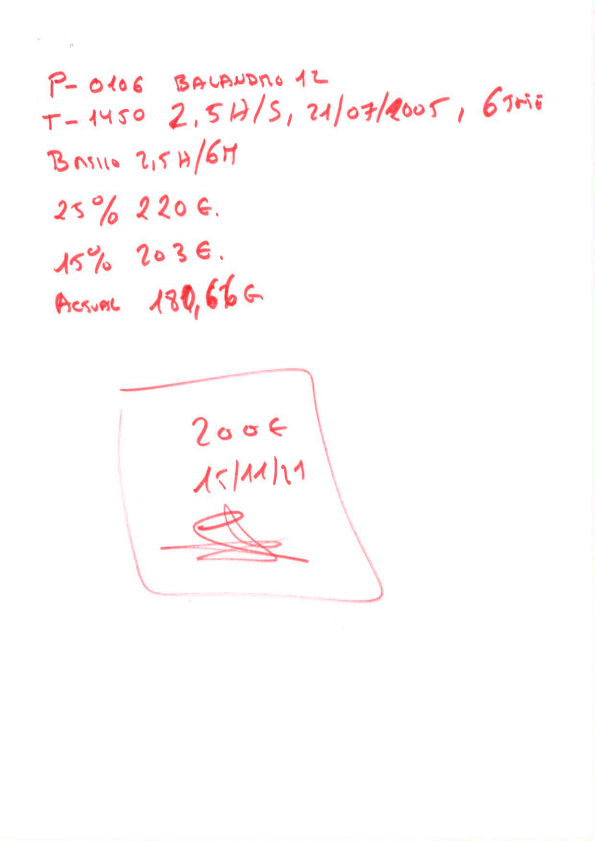 P- 0106 BALANDRO 12
T-1450 2,5H/S, 21/07/2005, 6
BASICO 2,5H/6M
25% 220€.
15% 203€.
ACTUAL 180,66€
200€
15/11/21